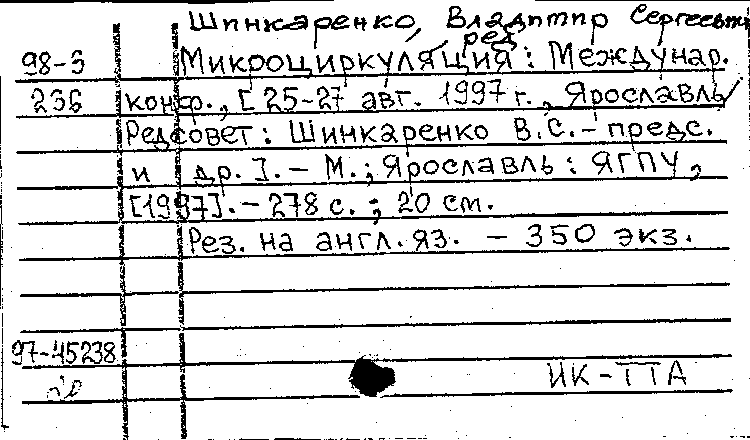 Шинкаренко, Владимир Сергеевич,
ред.
98-3 Микроциркуляция: Междунар.
236 конф., [25-27 авг. 1997 г., Ярославль /
Редсовет: Шинкаренко В.С. - предс.
и др.]. - М.; Ярославль: ЯГПУ,
[1997]. - 278 с.; 20 см.
Рез. на англ. яз. - 350 экз.
97-45238
ИК-ТТА